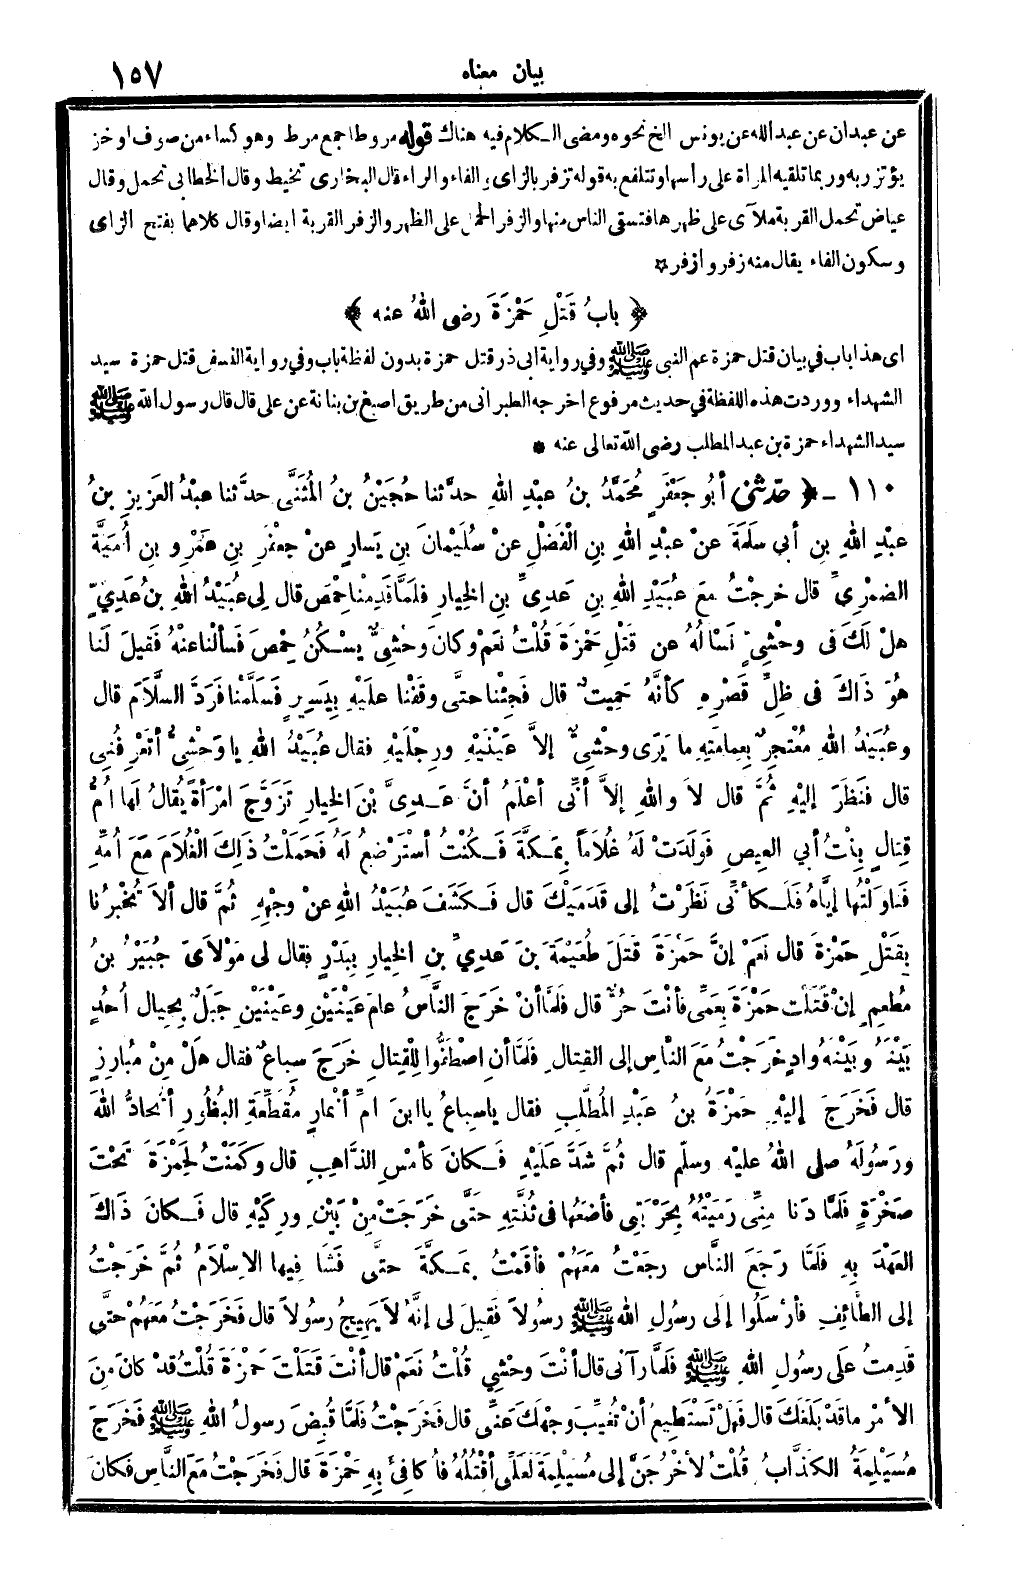 بيان معناه
١٥٧
عن عبدان عن عبدالله عن يونس الخ نحوه ومضى الكلام فيه هناك قوله مروطا جمع مرط وهو كساء من صوف او خز
يؤتزر به وربما تلقيه المرأة على رأسها وتتلفع به قوله تزفر بالزاى والفاء والراء قال البخارى تخيط وقال الخطابى تحمل وقال
عياض تحمل القربة ملآى على ظهرها فتسقى الناس منها والزفر الحمل على الظهر والزفر القربة ايضا وقال كلاهما بفتح الزاى
وسكون الفاء يقال منه زفر وازفر ٭
﴿ بابُ قَتْلِ حَمْزَةَ رضى اللهُ عنه ﴾
اى هذا باب في بيان قتل حمزة عم النبى ﷺ وفي رواية ابى ذر قتل حمزة بدون لفظة باب وفي رواية النسفى قتل حمزة سيد
الشهداء ووردت هذه اللفظة في حديث مرفوع اخرجه الطبرانى من طريق اصبغ بن بنانة عن على قال قال رسول الله ﷺ
سيد الشهداء حمزة بن عبدالمطلب رضى الله تعالى عنه ٭
١١٠ - ﴿ حَدّثنى أبُو جَعْفَرٍ مُحَمَّدُ بنُ عبْدِ اللهِ حدّثنا حُجَيْنُ بنُ المُثَنَّى حدّثنا عبْدُ العَزِيزِ بنُ
عبْدِ اللهِ بنِ أبي سلَمَةَ عنْ عبْدِ اللهِ بنِ الْفَضْلِ عنْ سُلَيْمانَ بنِ يَسارٍ عنْ جعْفَرِ بنِ عَمْرِو بنِ أُمَيَّةَ
الضَّمْرِىِّ قال خرجْتُ مَعَ عُبَيْدِ اللهِ بنِ عَدِىِّ بنِ الخِيارِ فلَمَّا قَدِمْنا حِمْصَ قال لِى عُبَيْدُ اللهِ بنُ عَدِيٍّ
هلْ لَكَ فى وحْشِىٍّ نَسْألُهُ عن قَتْلِ حَمْزَةَ قُلْتُ نَعَمْ وكانَ وَحْشِىٌّ يسْكُنُ حِمْصَ فَسألْنا عنْهُ فَقِيلَ لَنا
هُوَ ذَاكَ فى ظِلِّ قَصْرِهِ كأنَّهُ حَمِيتٌ قال فَجِئْنا حتَّى وقَفْنا علَيْهِ بِيَسِيرٍ فَسَلَّمْنا فَرَدَّ السَّلاَمَ قال
وعُبَيْدُ اللهِ مُعْتَجِرٌ بِعِمامَتِهِ ما يَرَى وحْشِىٌّ إلاَّ عَيْنَيْهِ ورِجْلَيْهِ فقال عُبَيْدُ اللهِ ياوَحْشِىُّ أتَعْرِفُنِى
قال فَنَظَرَ إلَيْهِ ثُمَّ قال لاَ واللهِ إلاَّ أنِّى أعْلَمُ أنَّ عَدِىَّ بْنَ الخِيارِ تَزَوَّجَ امْرَأةً يُقالُ لَها أُمُّ
قِتالٍ بِنْتُ أبي العِيصِ فَوَلَدَتْ لَهُ غُلاَماً بِمَكَّةَ فَكُنْتُ أسْتَرْضِعُ لهُ فَحَمَلْتُ ذَلِكَ الْغُلاَمَ مَعَ أُمِّهِ
فَناوَلْتُها إيَّاهُ فَلَكأنِّى نَظَرْتُ إلى قَدَمَيْكَ قال فَكَشَفَ عُبَيْدُ اللهِ عنْ وجْهِهِ ثُمَّ قال ألاَ تُخْبِرُنا
بِقَتْلِ حَمْزةَ قال نَعَمْ إنَّ حَمْزَةَ قَتَلَ طُعَيْمَةَ بنَ عَدِيِّ بنِ الخِيارِ بِبَدْرٍ فقال لى مَوْلاَىَ جبَيْرُ بنُ
مُطْعِمٍ إنْ قَتَلْتَ حَمْزَةَ بِعَمِّى فأنْتَ حُرٌّ قال فَلَمَّا أنْ خَرَجَ النَّاسُ عامَ عَيْنَيْنِ وعَيْنَيْنِ جَبَلٌ بِحِيالِ أُحُدٍ
بَيْنَهُ وبَيْنَهُ وادٍ خَرَجْتُ مَعَ النَّاسِ إلى القِتالِ فلَمَّا أنِ اصْطَفُّوا لِلْقِتالِ خَرَجَ سِباعٌ فقال هَلْ مِنْ مُبارِزٍ
قال فَخَرَجَ إلَيْهِ حَمْزَةُ بنُ عَبْدِ المُطَّلِبِ فقال ياسِباعُ يا ابنَ امِّ أنْمارٍ مُقَطِّعَةِ البُظُورِ أتُحادُّ اللهَ
ورَسُولَهُ صلى اللهُ عليْه وسلّم قال ثُمَّ شَدَّ عَلَيْهِ فَكانَ كأمْسِ الذَّاهِبِ قال وكَمَنْتُ لِحَمْزَةَ تَحْتَ
صَخْرَةٍ فَلَمَّا دَنا مِنِّى رَمَيْتُهُ بِحَرْبَتِى فأضَعُها فى ثُنَّتِهِ حتَّى خَرَجَتْ مِنْ بَيْنِ ورِكَيْهِ قال فَكانَ ذَاكَ
العَهْدَ بِهِ فَلَمَّا رَجَعَ النَّاس رجَعْتُ معَهُمْ فأقَمْتُ بِمَكَّةَ حتَّى فَشَا فِيها الإسْلاَمُ ثُمَّ خرَجْتُ
إلى الطَّائِفِ فأرْسَلُوا إلَى رسُولِ اللهِ ﷺ رسولاً فَقِيلَ لى إنَّهُ لاَ يَهِيجُ رسُولاً قال فَخَرَجْتُ معَهُمْ حتَّى
قَدِمتُ علَى رسُولِ اللهِ ﷺ فلَمَّا رآنى قال أنْتَ وحْشِي قُلْتُ نَعَمْ قال أنْتَ قَتَلْتَ حَمْزَةَ قُلْتُ قدْ كانَ مِنَ
الأمْرِ ما قَدْ بَلَغَكَ قال فَهَلْ تَسْتَطِيعُ أنْ تُغَيِّبَ وجْهَكَ عَنِّى قال فَخَرَجْتُ فلَمَّا قُبِضَ رسولُ اللهِ ﷺ فَخَرَجَ
مُسَيْلِمَةُ الكَذَّابُ قُلْتُ لأخْرُجَنَّ إلى مُسَيْلِمَةَ لَعَلِّى أقْتُلُهُ فأُكافِئَ بِهِ حَمْزَةَ قال فَخَرَجْتُ مَعَ النَّاسِ فكانَ